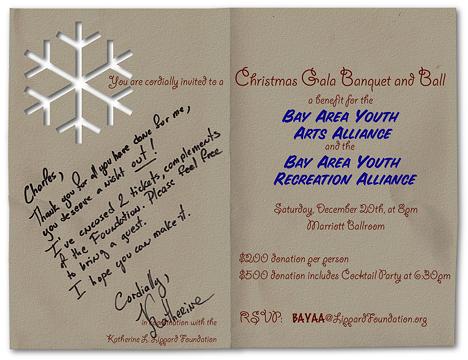 You are cordially invited to a
Charles,
Thank you for all you have done for me,
you deserve a night out!
I've encosed 2 tickets, complements
of the Foundation. Please feel free
to bring a guest.
I hope you can make it.
Cordially,
Katherine
in coordination with the
Katherine L. Lippard Foundation
Christmas Gala Banquet and Ball
a benefit for the
BAY AREA YOUTH
ARTS ALLIANCE
and the
BAY AREA YOUTH
RECREATION ALLIANCE
Saturday, December 20th, at 8pm
Marriott Ballroom
$200 donation per person
$500 donation includes Cocktail Party at 6:30pm
RSVP: BAYAA@LippardFoundation.org